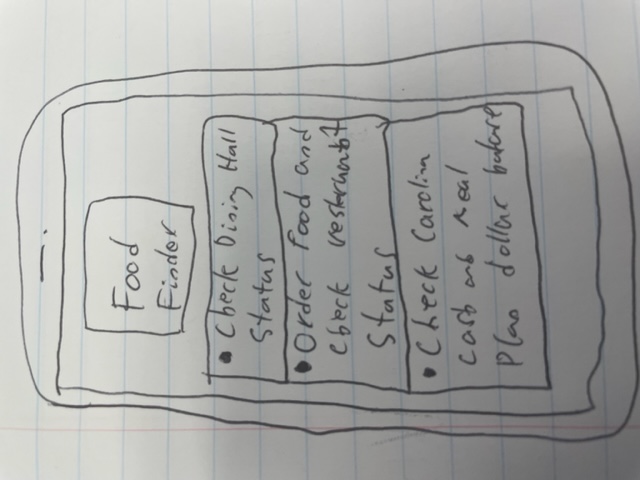 Food
Finder
• Check Dining Hall
Status
• Order Food and
check
Status
• Check Carolina
Cash and Meal
Plan dollar balance